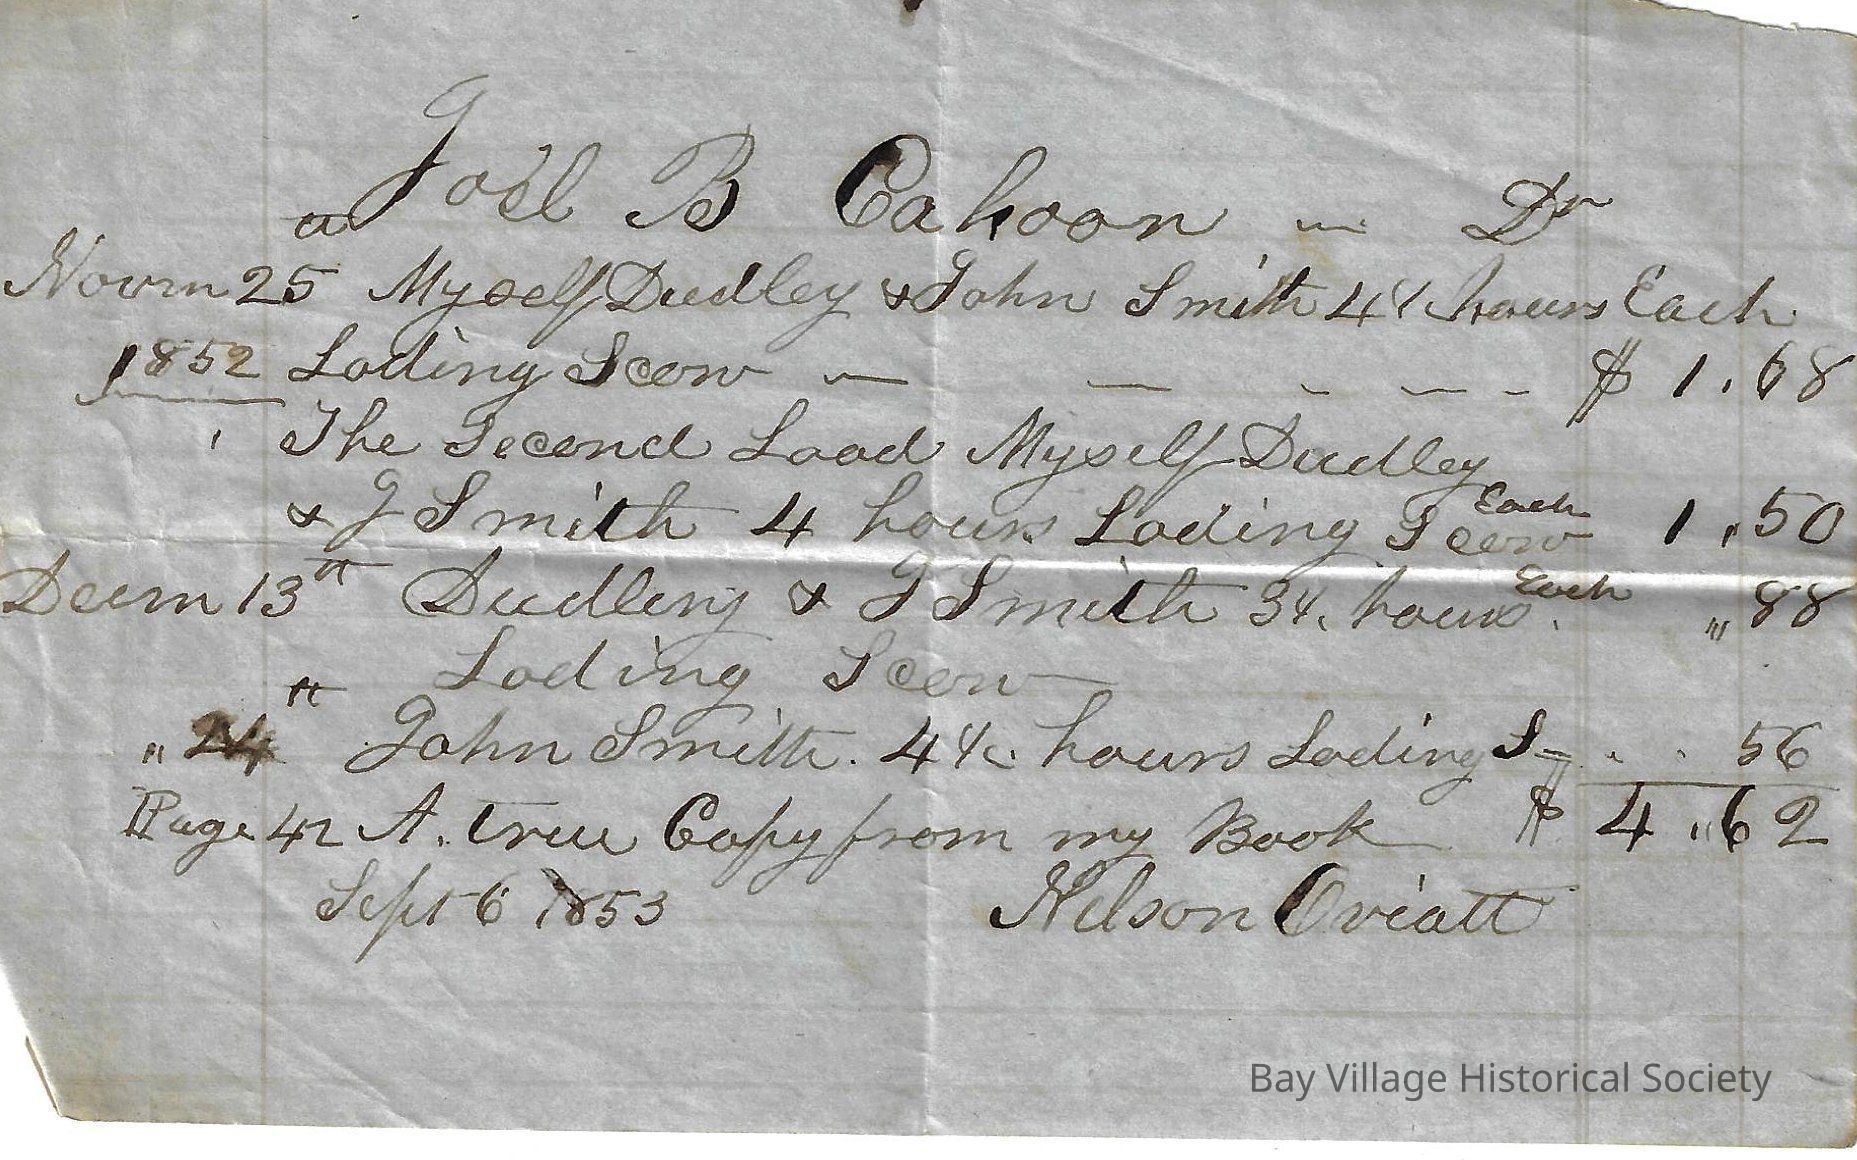 Joel B Cahoon — Dr
Novm 25th Myself Dudley & John Smith 4½ hours Each
1852 Loding Scow — — - — - $ 1.68
" The Second Load Myself Dudley
& J Smith 4 hours Loding Scow Each 1.50
Decm 13th Dudley & J Smith 3½ hours Each " 88
Loding Scow
" 24th John Smith. 4½ hours Loding S= . . 56
Page 42 A. true Copy from my Book $ 4.62
Sept 6 1853 Nelson Oviatt
Bay Village Historical Society